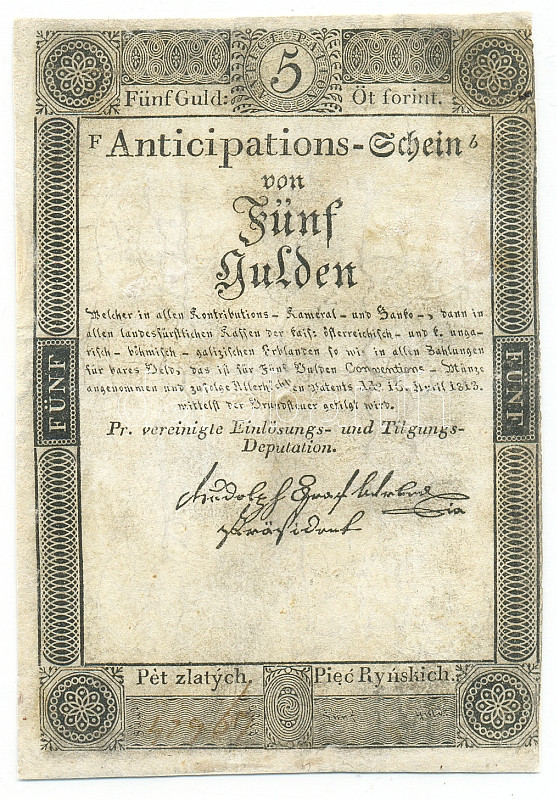 ANTICIPATIONS
5
Fünf Guld: Öt forint.
F Anticipations-Schein b
von
Fünf
Gulden
Welcher in allen Kontributions- Kameral- und Banko-, dann in
allen landesfürstlichen Kassen der kais: österreichisch- und k. unga-
risch- böhmisch- galizischen Erblanden so wie in allen Zahlungen
für bares Geld, das ist für Fünf Gulden Conventions-Münze
angenommen und zufolge Allerhöchsten Patents 16. April 1813.
mittelst der Grundsteuer getilgt wird.
Pr. vereinigte Einlösungs- und Tilgungs-
Deputation.
Rudolph Graf
Präsident
FÜNF
FÜNF
Pèt zlatých. Pięć Ryńskich.